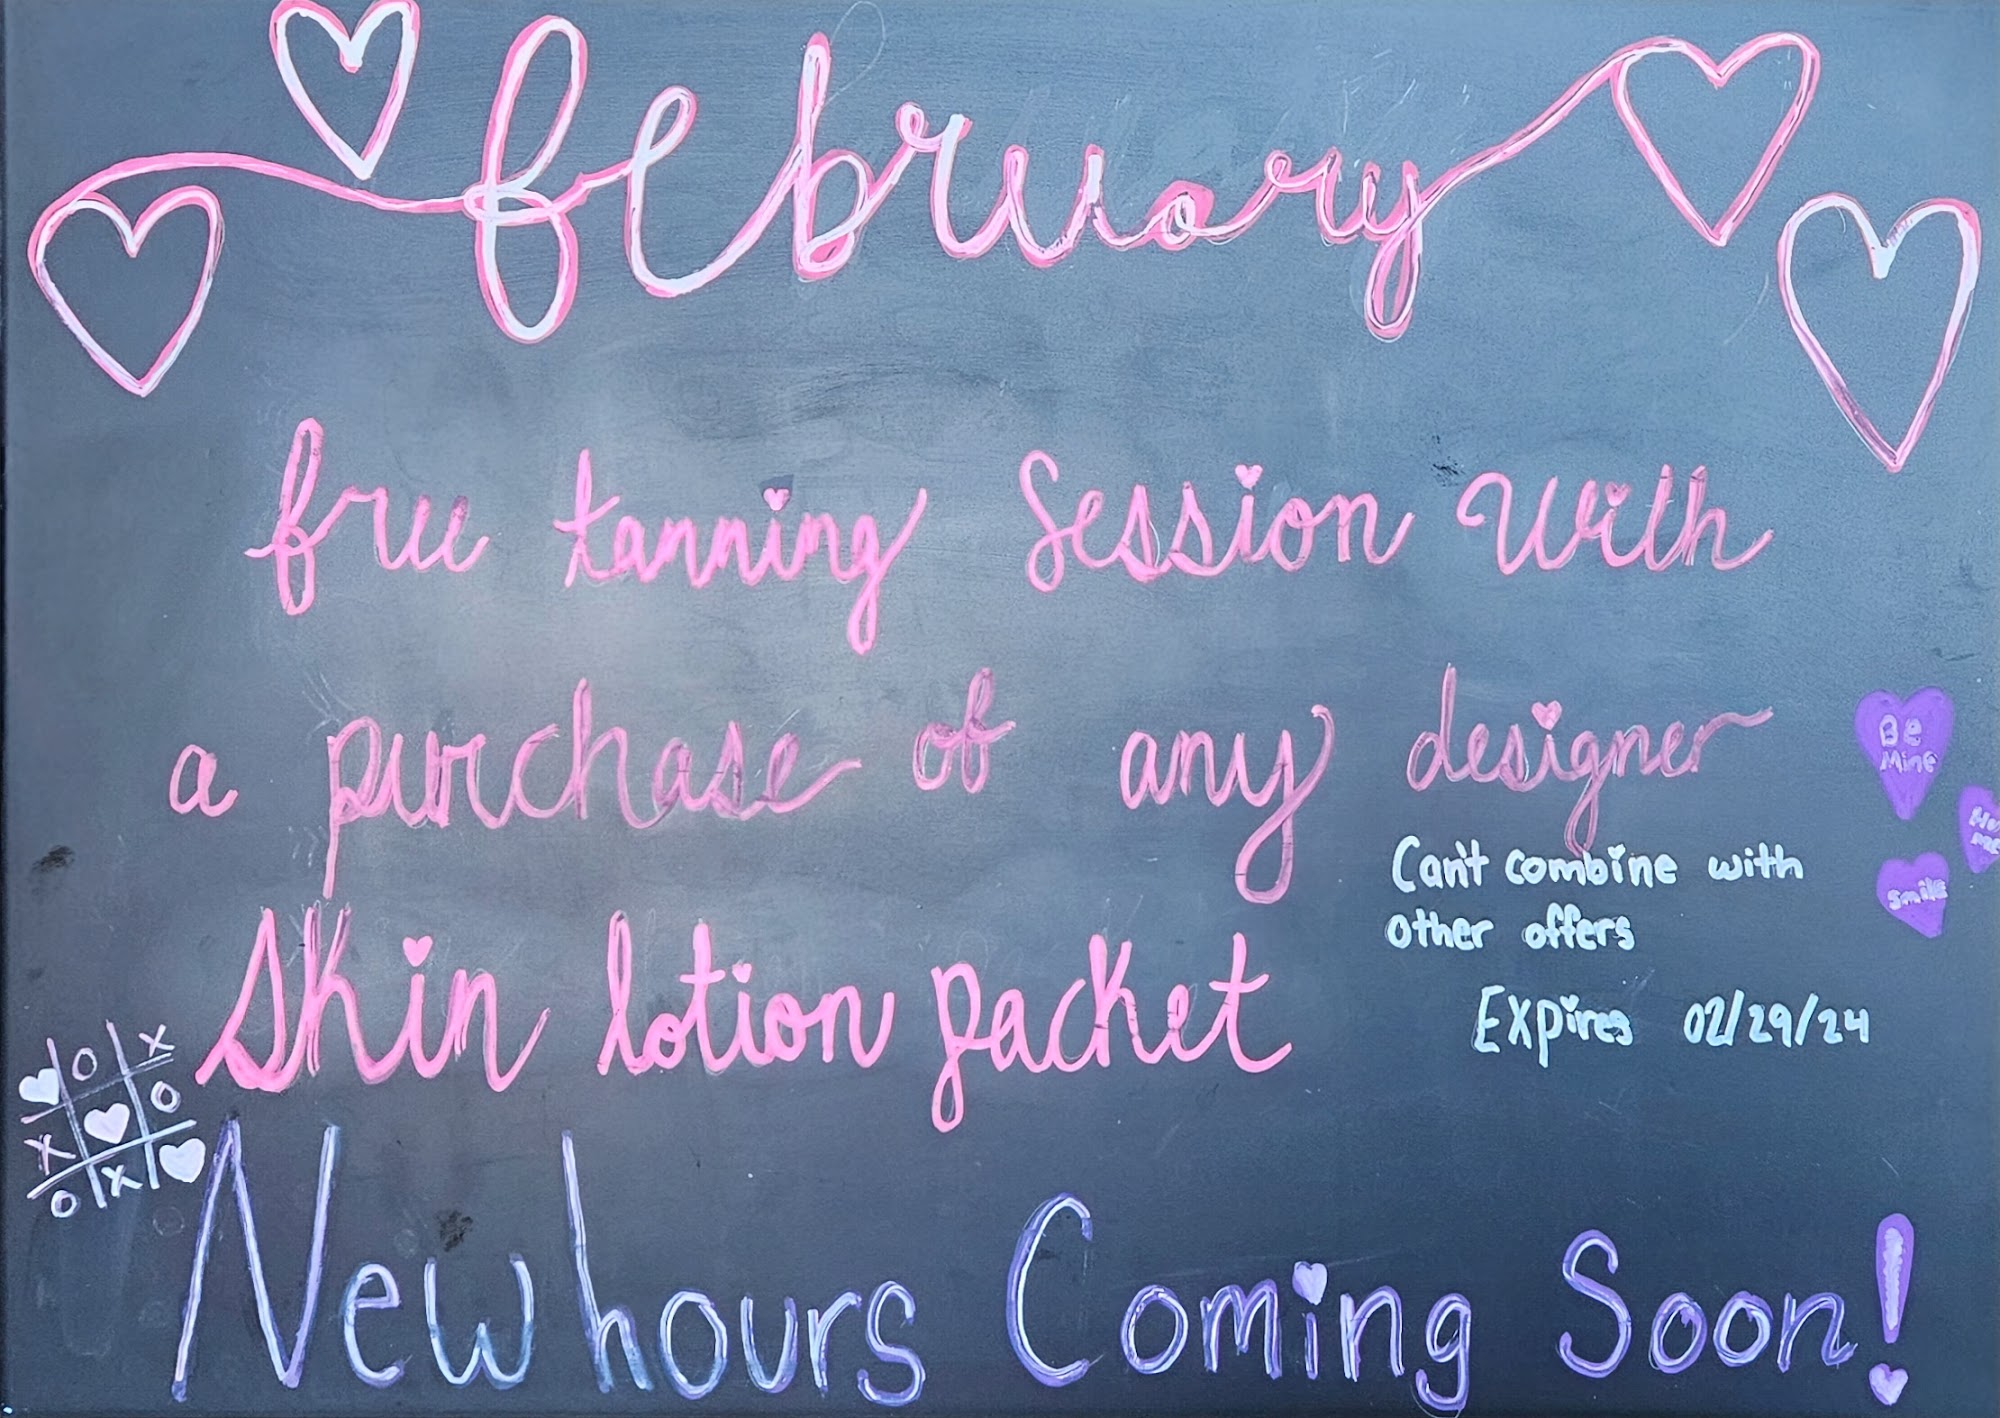 february
free tanning Session with
a purchase of any designer
Skin lotion packet
Can't combine with
other offers
Expires 02/29/24
Be
Mine
Smile
O X
O
X
O X
New hours Coming Soon!